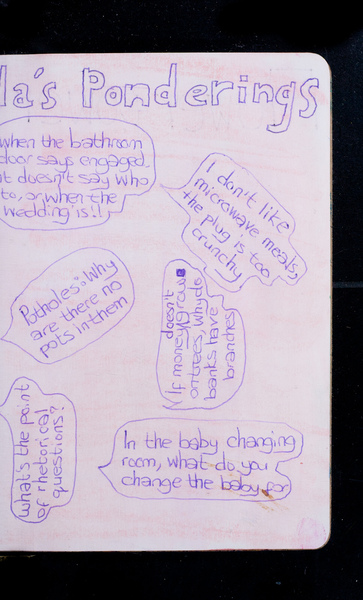 la's Ponderings
when the bathroom
door says engaged
it doesn't say who
to, or when the
wedding is!!
I don't like
microwave meals,
the plug is too
crunchy
Potholes: Why
are there no
pots in them
If money doesn't grow
on trees, why do
banks have
branches
what's the point
of rhetorical
questions?
In the baby changing
room, what do you
change the baby for